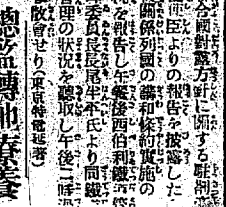 全國對露方針に關する駐劄
使臣よりの報告を披露した
關係列國の講和條約實施の
を報告し午餐後西伯利鐵道管
委員長長尾半平氏より同鐵
管理の狀況を聽取し午後二時過
散會せり(東京特電延着)
總監轉地療養